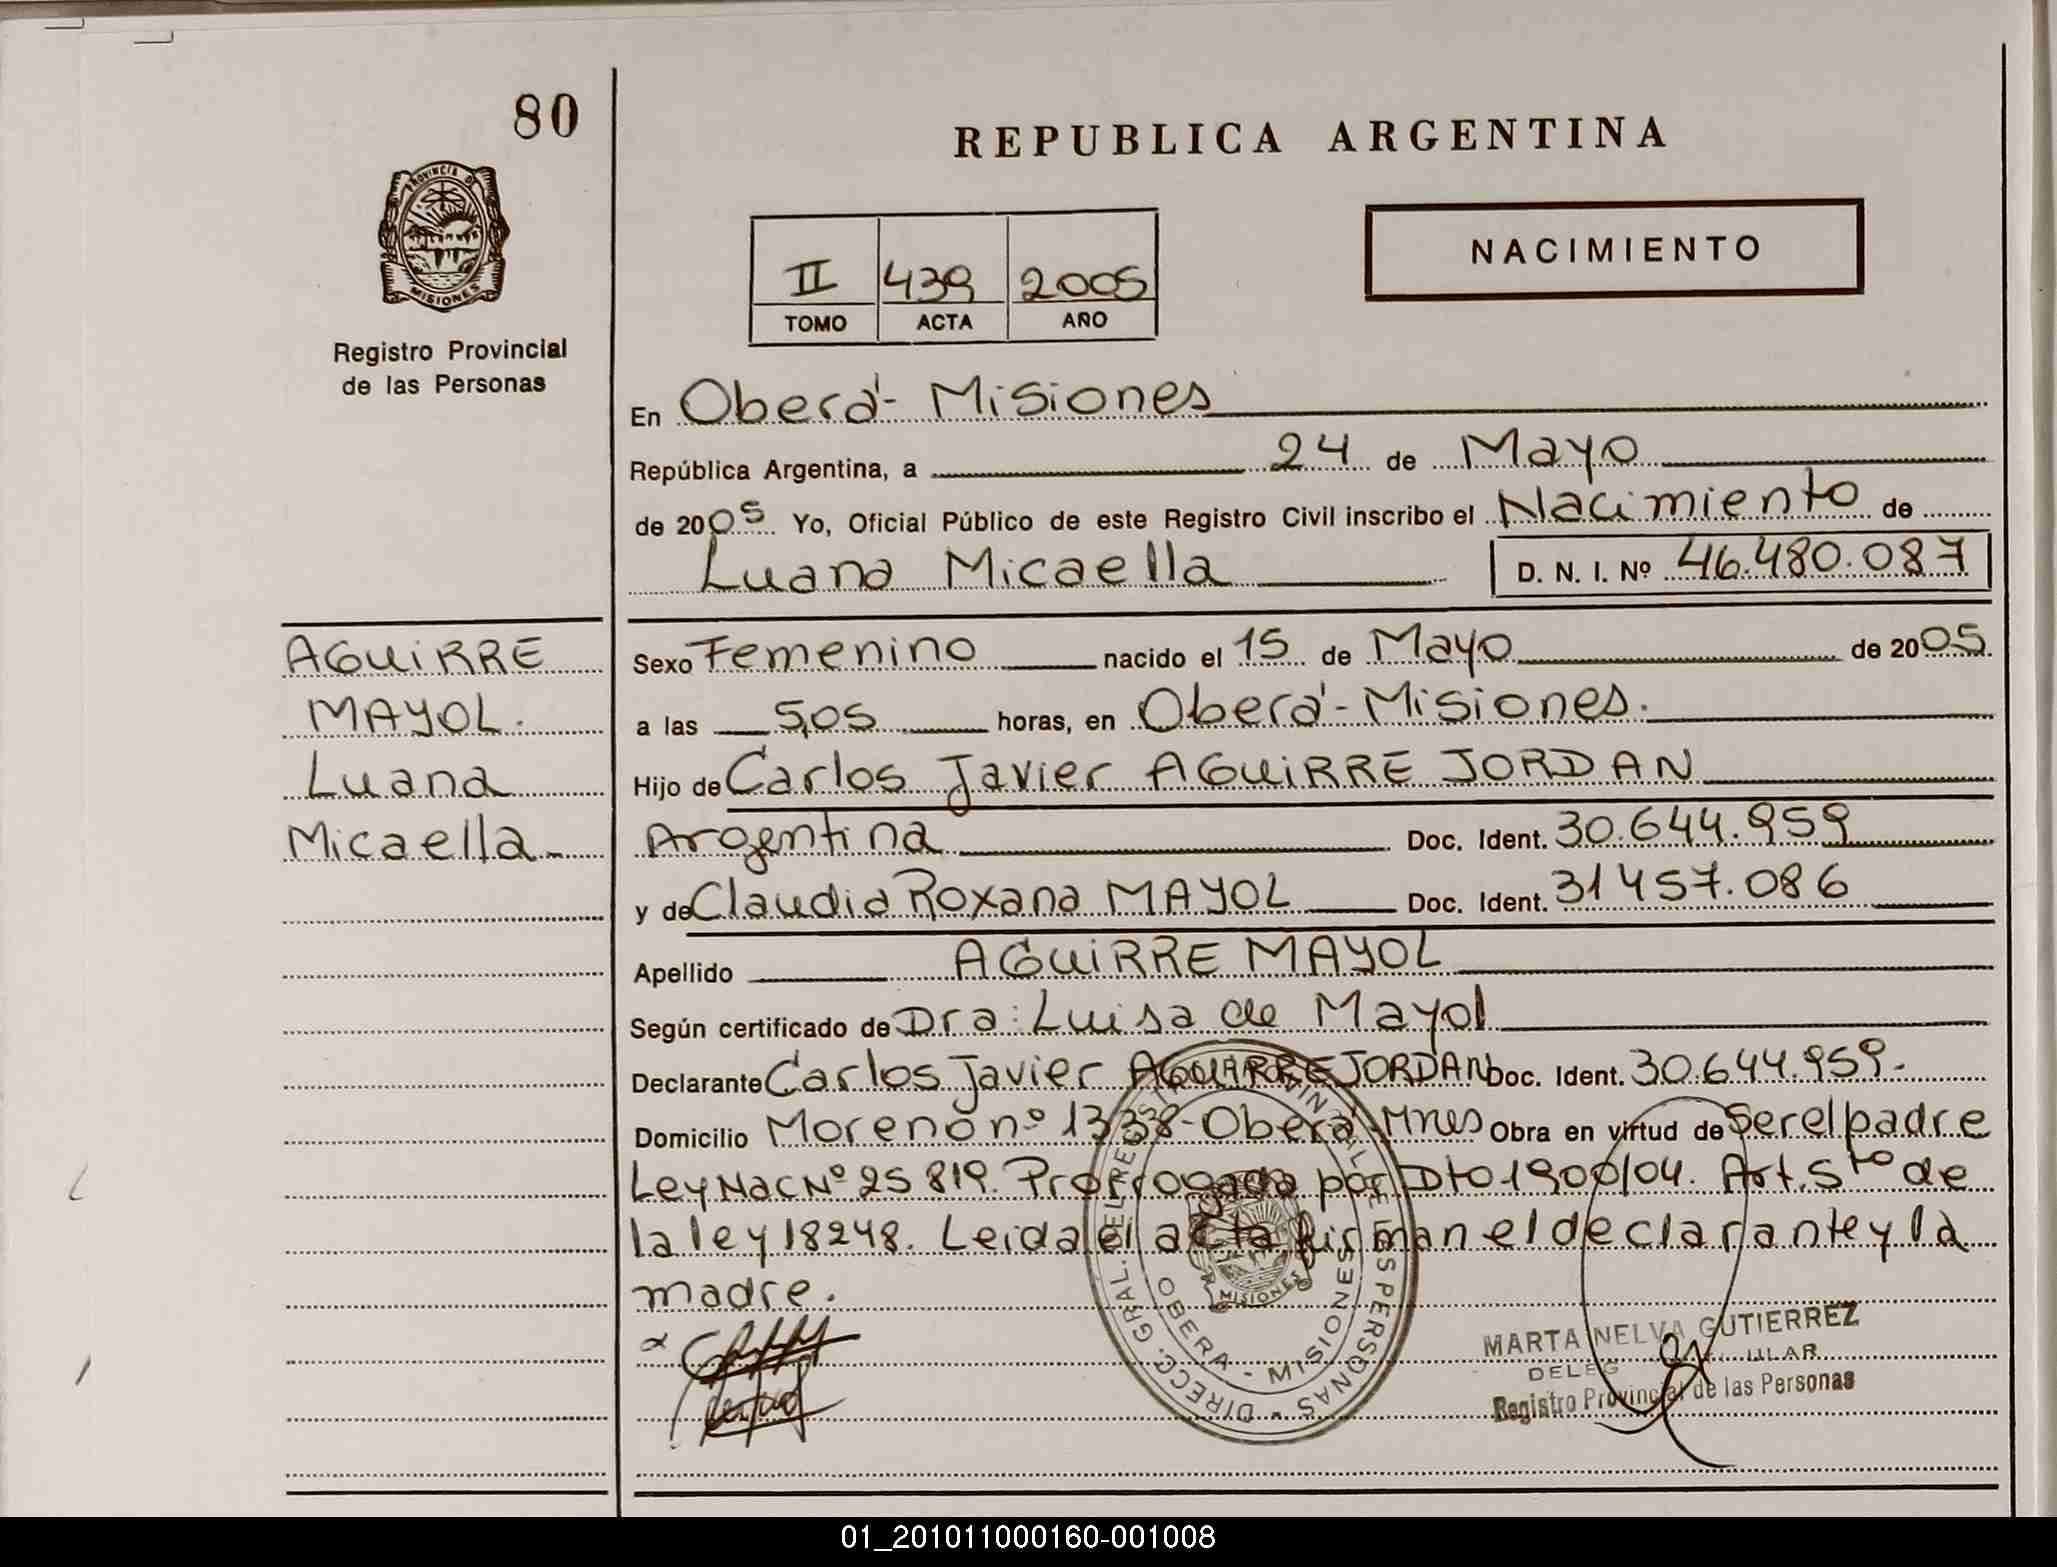 80
REPUBLICA ARGENTINA
PROVINCIA DE
MISIONES
Registro Provincial
de las Personas
NACIMIENTO
II 439 2005
TOMO ACTA AÑO
En Oberá - Misiones
República Argentina, a 24 de Mayo
de 2005 Yo, Oficial Público de este Registro Civil inscribo el Nacimiento de
Luana Micaella D. N. I. Nº 46.480.087
AGUiRRE
MAYOL.
Luana
Micaella
Sexo Femenino nacido el 15 de Mayo de 2005
a las 5,05 horas, en Oberá - Misiones.
Hijo de Carlos Javier AGUiRRE JORDAN
Argentina Doc. Ident. 30.644.959
y de Claudia Roxana MAYOL Doc. Ident. 31457.086
Apellido AGUiRRE MAYOL
Según certificado de Dra: Luisa de Mayol
Declarante Carlos Javier AGUiRRE JORDAN Doc. Ident. 30.644.959.
Domicilio Moreno nº 1338 - Oberá Mnes Obra en virtud de Ser el padre
Ley Nac Nº 25 819. Prorrogada por Dto 1900/04. Art. 5to de
la ley 18248. Leida el acta firman el declarante y la
madre.
DIRECC. GRAL. DEL REGISTRO PROVINCIAL DE LAS PERSONAS
MISIONES
OBERA - MISIONES
MARTA NELVA GUTIERREZ
Registro Provincial de las Personas
01_201011000160-001008